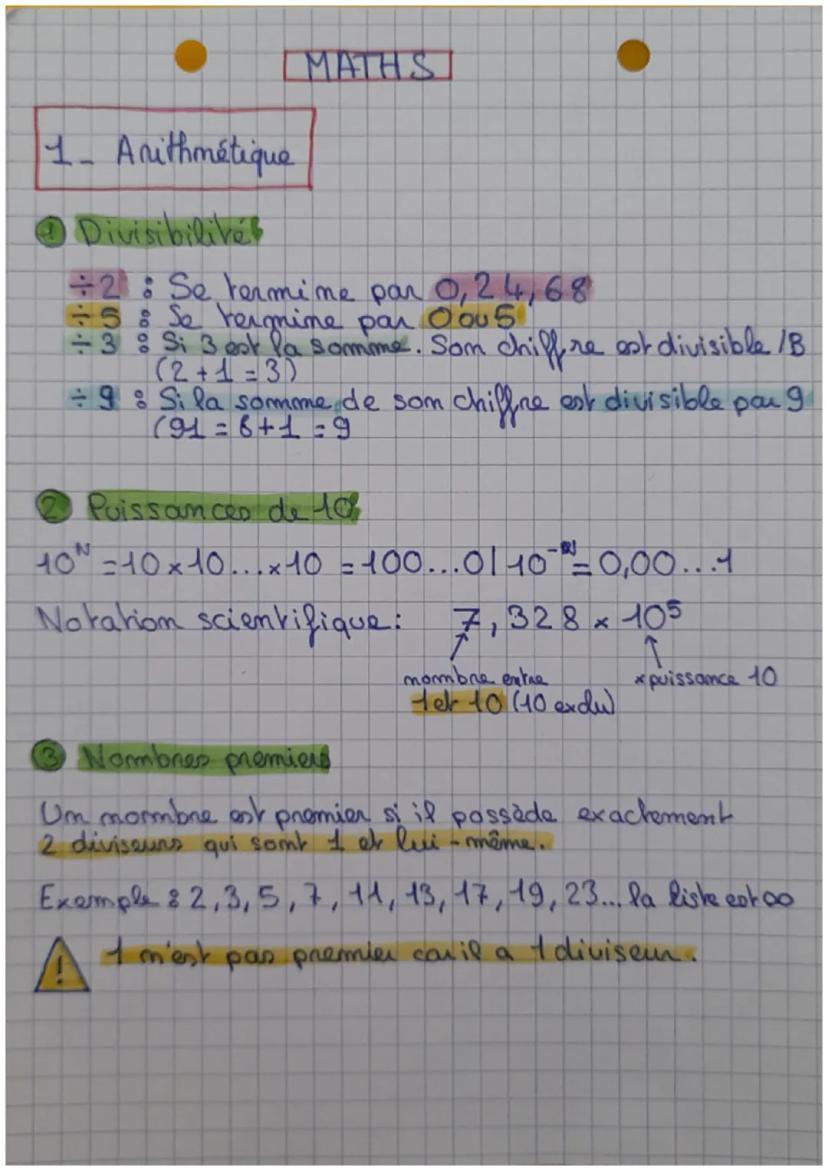 MATHS
1- Arithmétique
① Divisibilité
÷2 : Se termine par 0,24,68
÷5 : Se termine par 0 ou 5
÷3 : Si 3 est la somme. Son chiffre est divisible /B
(2+1=3)
÷9 : Si la somme de son chiffre est divisible par 9
(91=8+1=9
② Puissances de 10
10ᴺ =10×10...×10 =100...0| 10⁻ = 0,00...1
Notation scientifique: 7,328 × 10⁵
nombre entre ×puissance 10
1 et 10 (10 exclu)
③ Nombres premiers
Un nombre est premier si il possède exactement
2 diviseurs qui sont 1 et lui-même.
Exemple : 2,3,5,7,11,13,17,19,23... la liste est ∞
! 1 n'est pas premier car il a 1 diviseur.